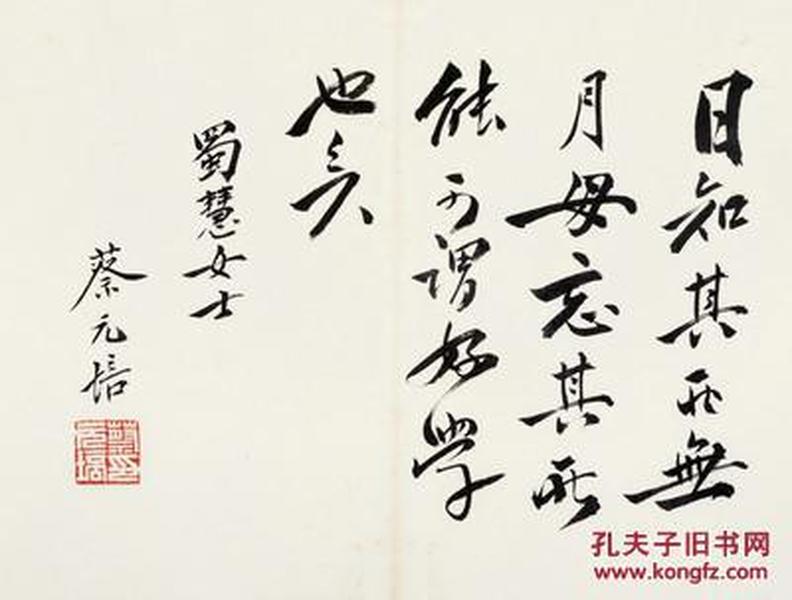 日知其所無
月毋忘其所
能可謂好學
也矣
蜀慧女士
蔡元培
孔夫子旧书网
www.kongfz.com